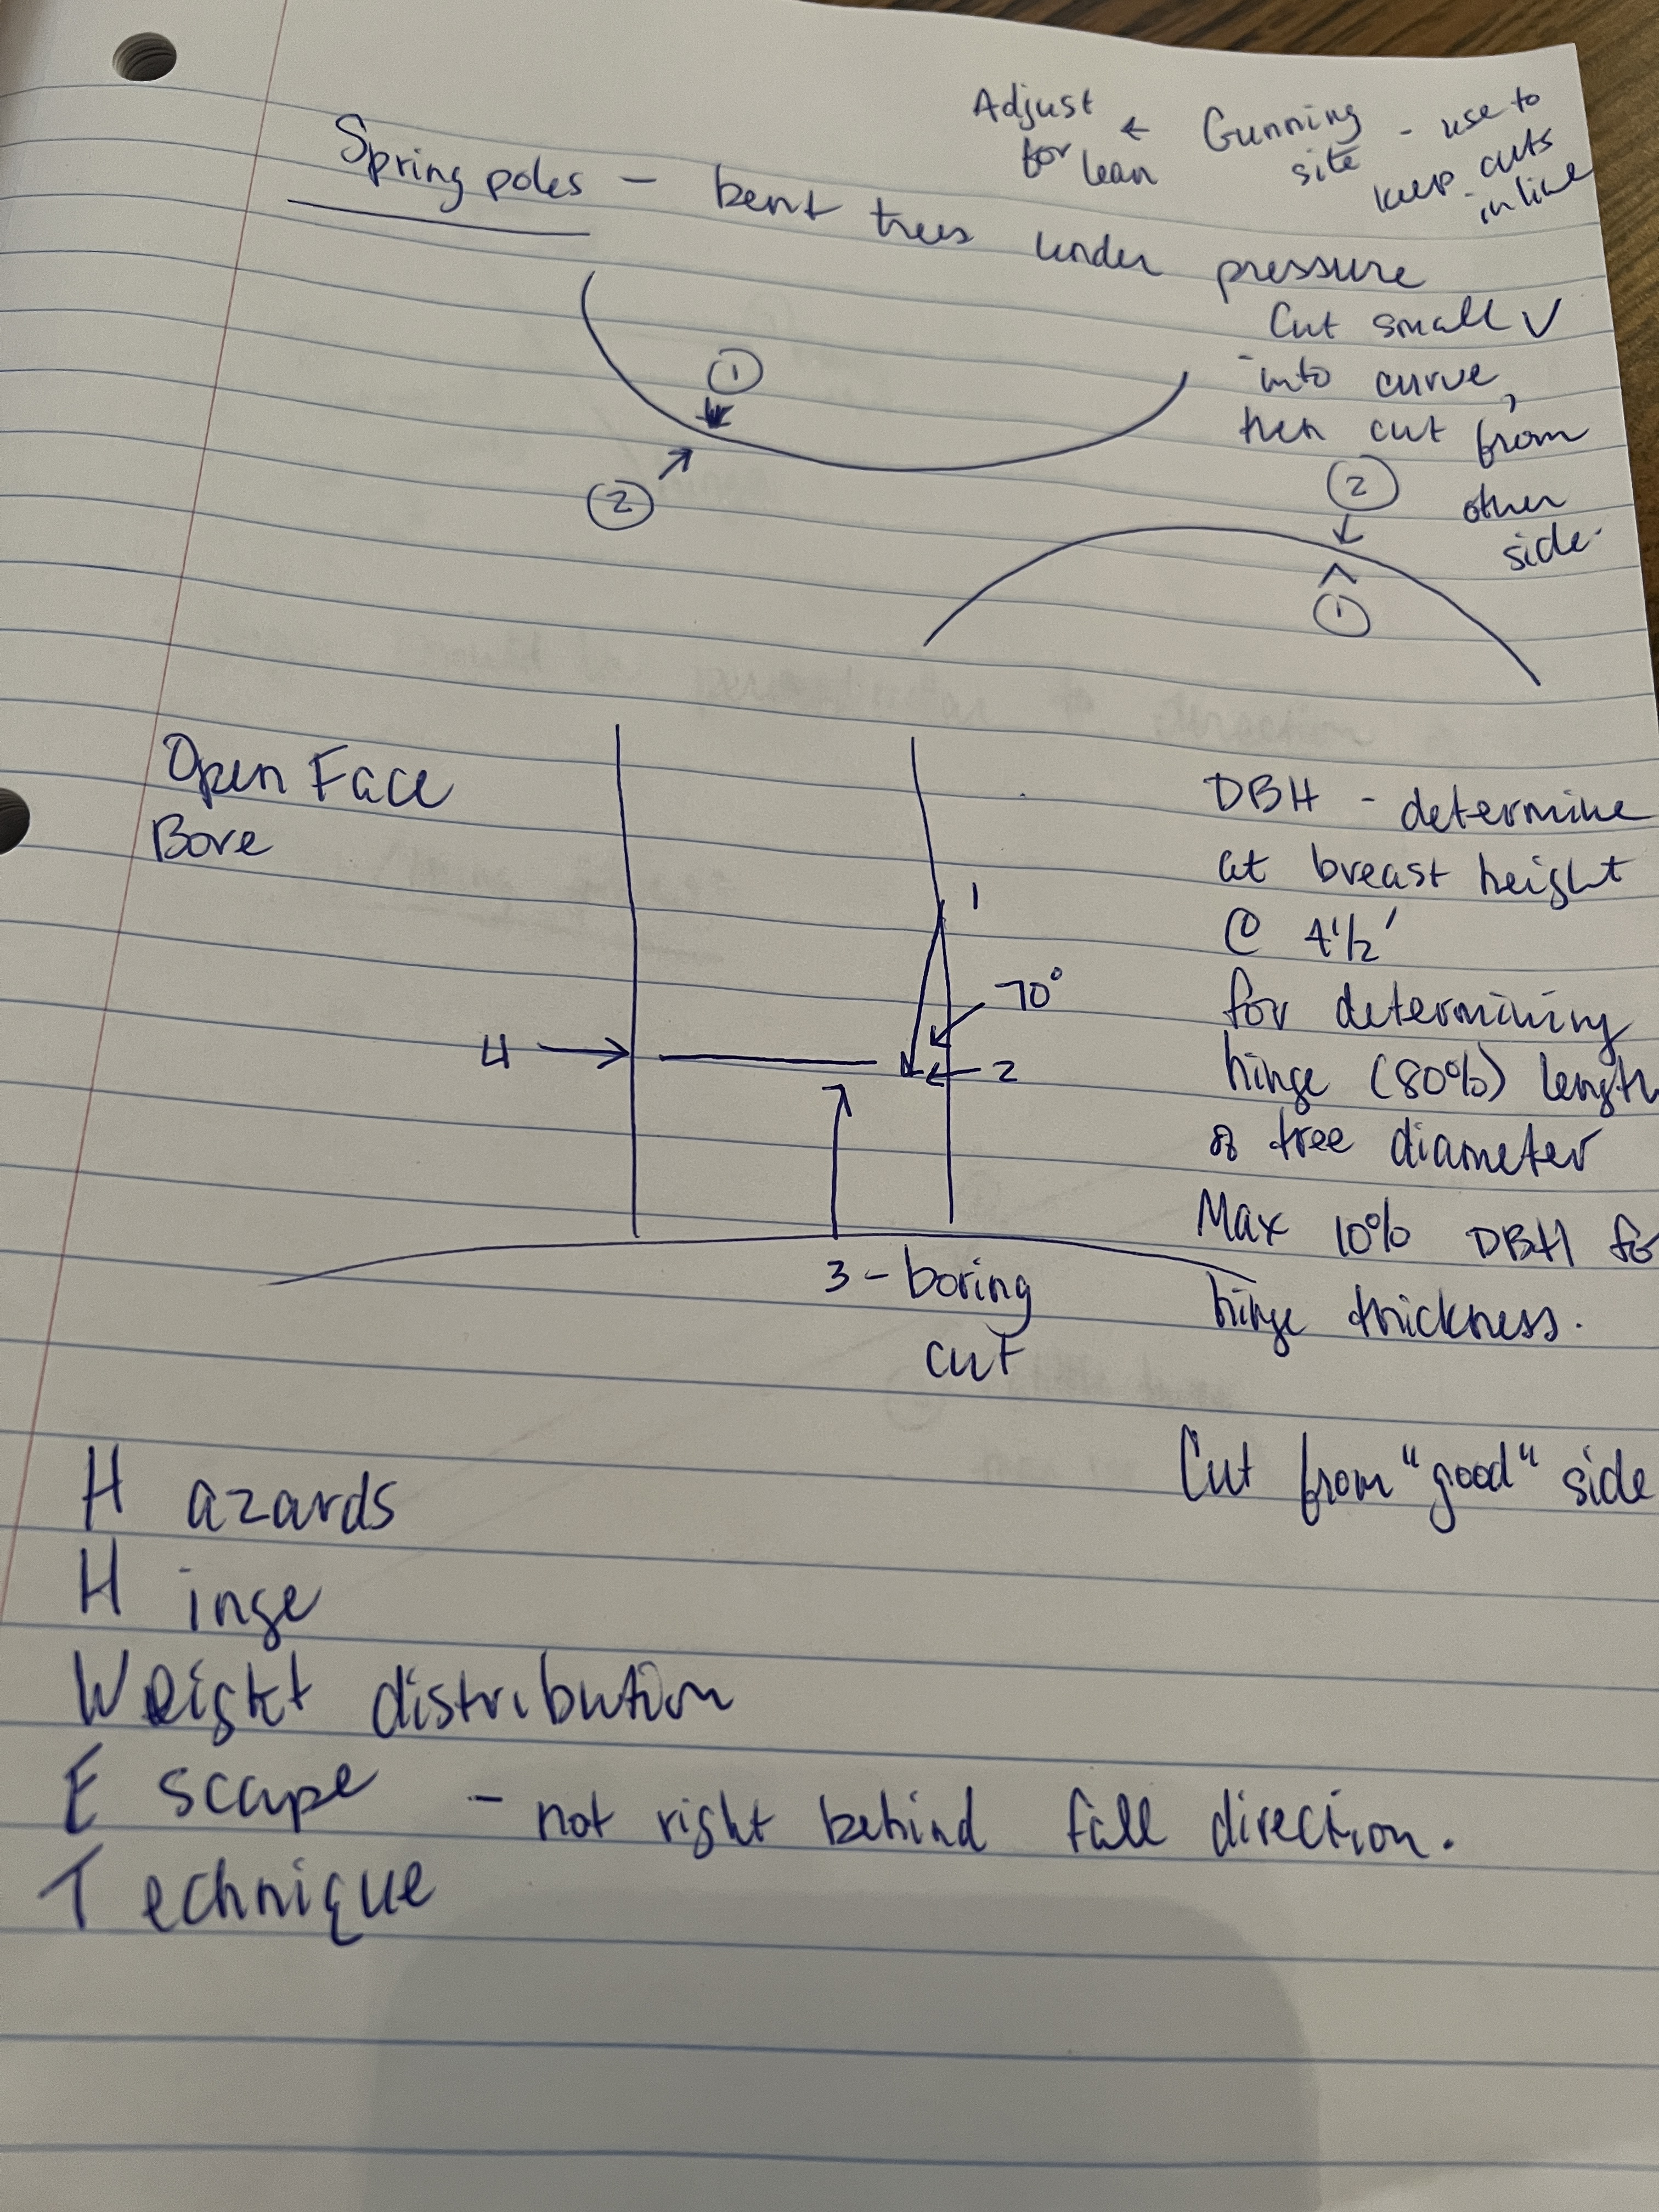 Adjust for lean ← Gunning site - use to keep cuts in line
Spring poles - bent trees under pressure
Cut small V
into curve,
then cut from
other
side.
1
2
2
1
Open Face
Bore
1
70°
4
2
3 - boring
cut
DBH - determine
at breast height
@ 4 1/2'
for determining
hinge (80%) length
of tree diameter
Max 10% DBH fo
hinge thickness.
Cut from "good" side
Hazards
Hinge
Weight distribution
Escape - not right behind fall direction.
Technique